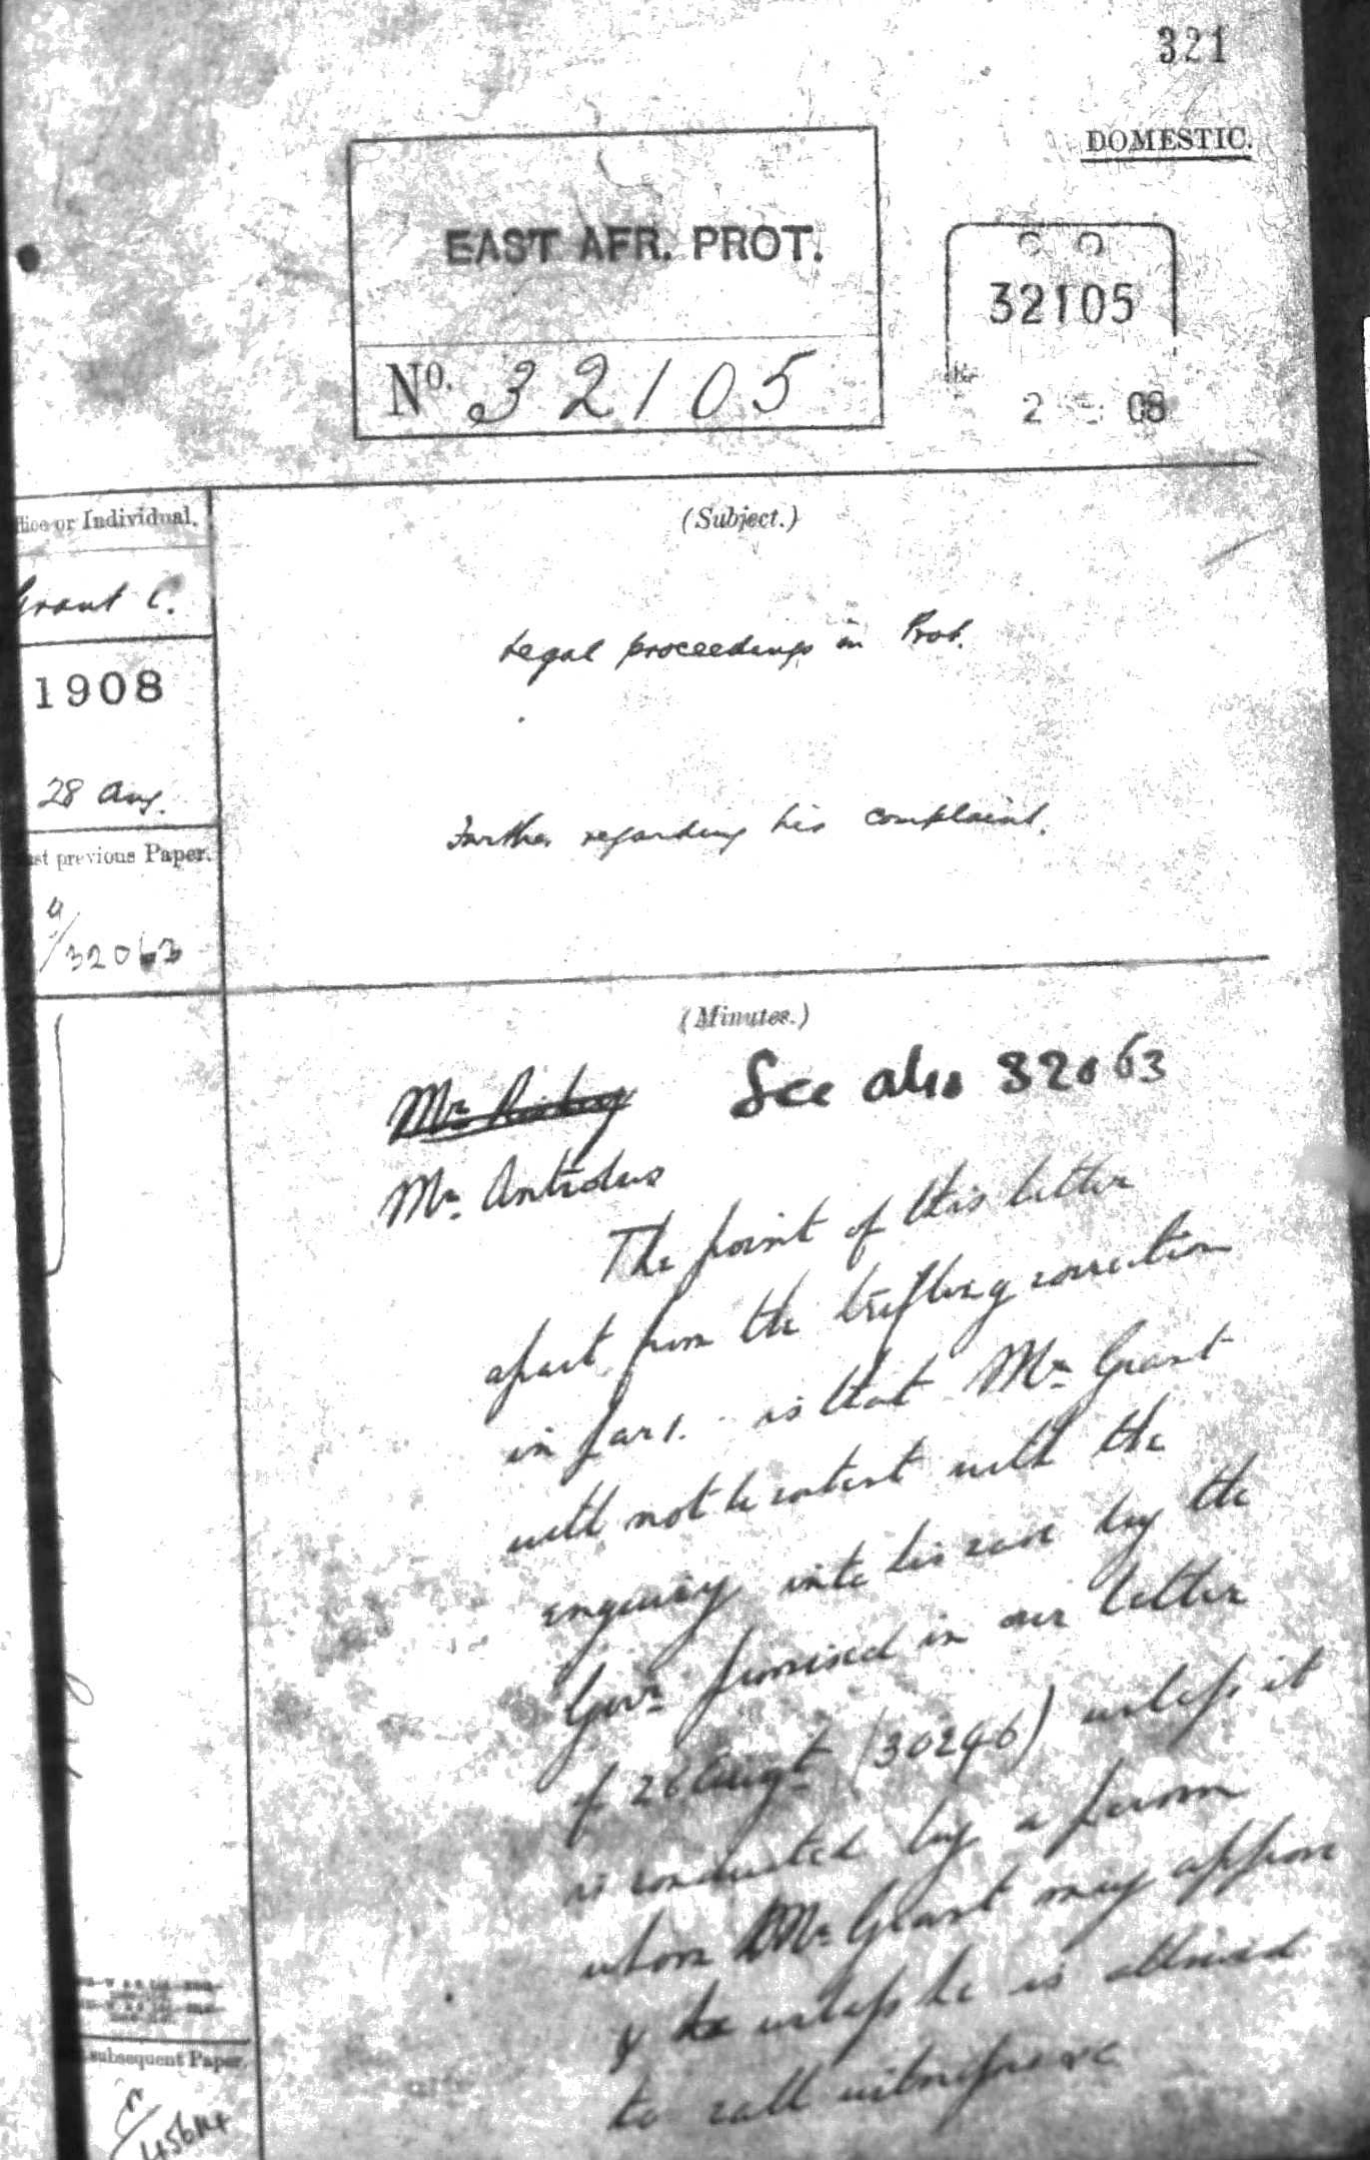 321
DOMESTIC.
EAST AFR. PROT.
No. 32105
C O
32105
2 08
ffice or Individual.
Grant C.
1908
28 Aug.
ast previous Paper.
32063
(Subject.)
Legal proceedings in Prot.
Further regarding his complaint.
(Minutes.)
Mr. Risley See also 32063
Mr. Antrobus
The point of this letter
apart from the trifling correction
in par 1. is that Mr. Grant
will not be content with the
enquiry into his case by the
Govr. promised in our letter
of 26 Augt (30296) unless it
is conducted by a person
whom Mr. Grant may approve
& unless he is allowed
to call witnesses
subsequent Paper.